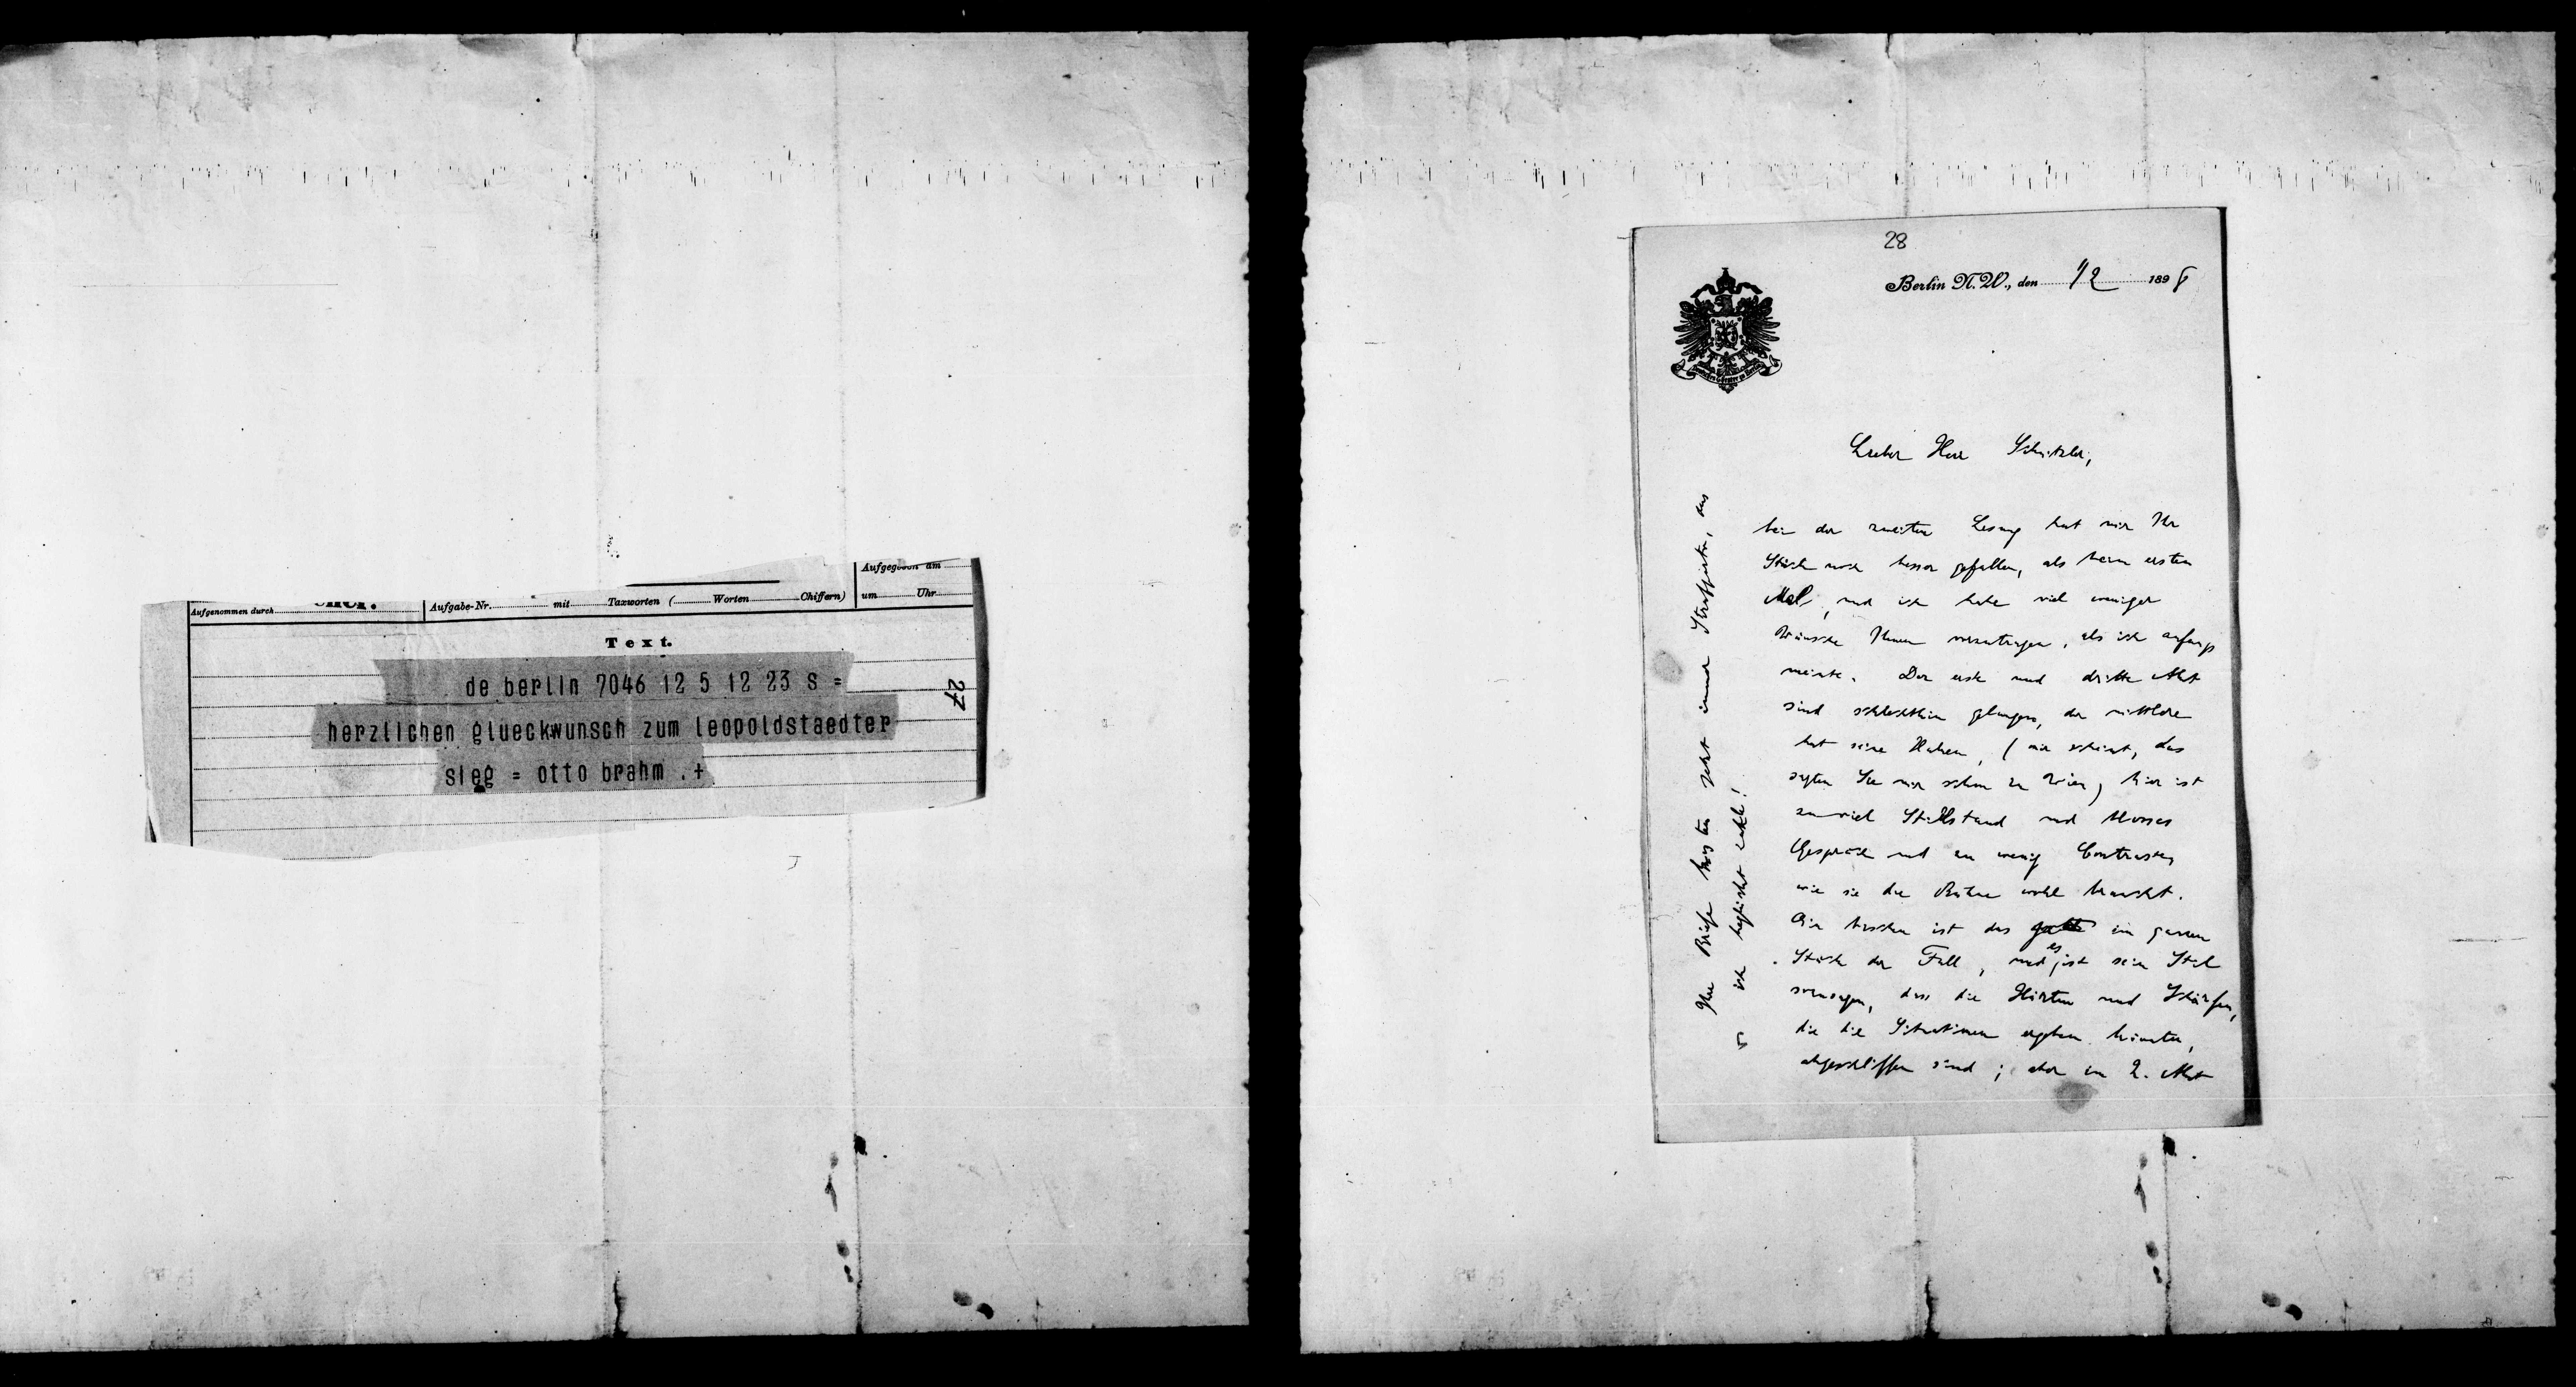 Aufgegeben am
Aufgenommen durch
Aufgabe-Nr. mit Taxworten ( Worten Chiffern) um Uhr
Text.
de berlin 7046 12 5 12 23 s =
herzlichen glueckwunsch zum leopoldstaedter
sieg = otto brahm .+
27
28
Berlin N.W., den 1/2 1898
Lieber Herr Schnitzler,
bei der zweiten Lesung hat mir Ihr
Stück noch besser gefallen, als beim ersten
Mal, und ich habe viel weniger
Wünsche Ihnen vorzutragen, als ich anfangs
meinte. Der erste und dritte Akt
sind schlechthin gelungen, der mittlere
hat seine Haken, (mir scheint, das
sagten Sie mir schon in Wien) hier ist
zu viel Stillstand und blosses
Gespräch und zu wenig Contraste,
wie sie die Bühne wohl braucht.
Ein bisschen ist das im ganzen
Stück der Fall, und es ist sein Stil
sozusagen, dass die Härten und Schärfen,
die die Situationen ergeben könnten,
abgeschliffen sind; aber im 2. Akt
Ihre Briefe kosten jetzt immer Strafporto, das
ich begliückt zahle!